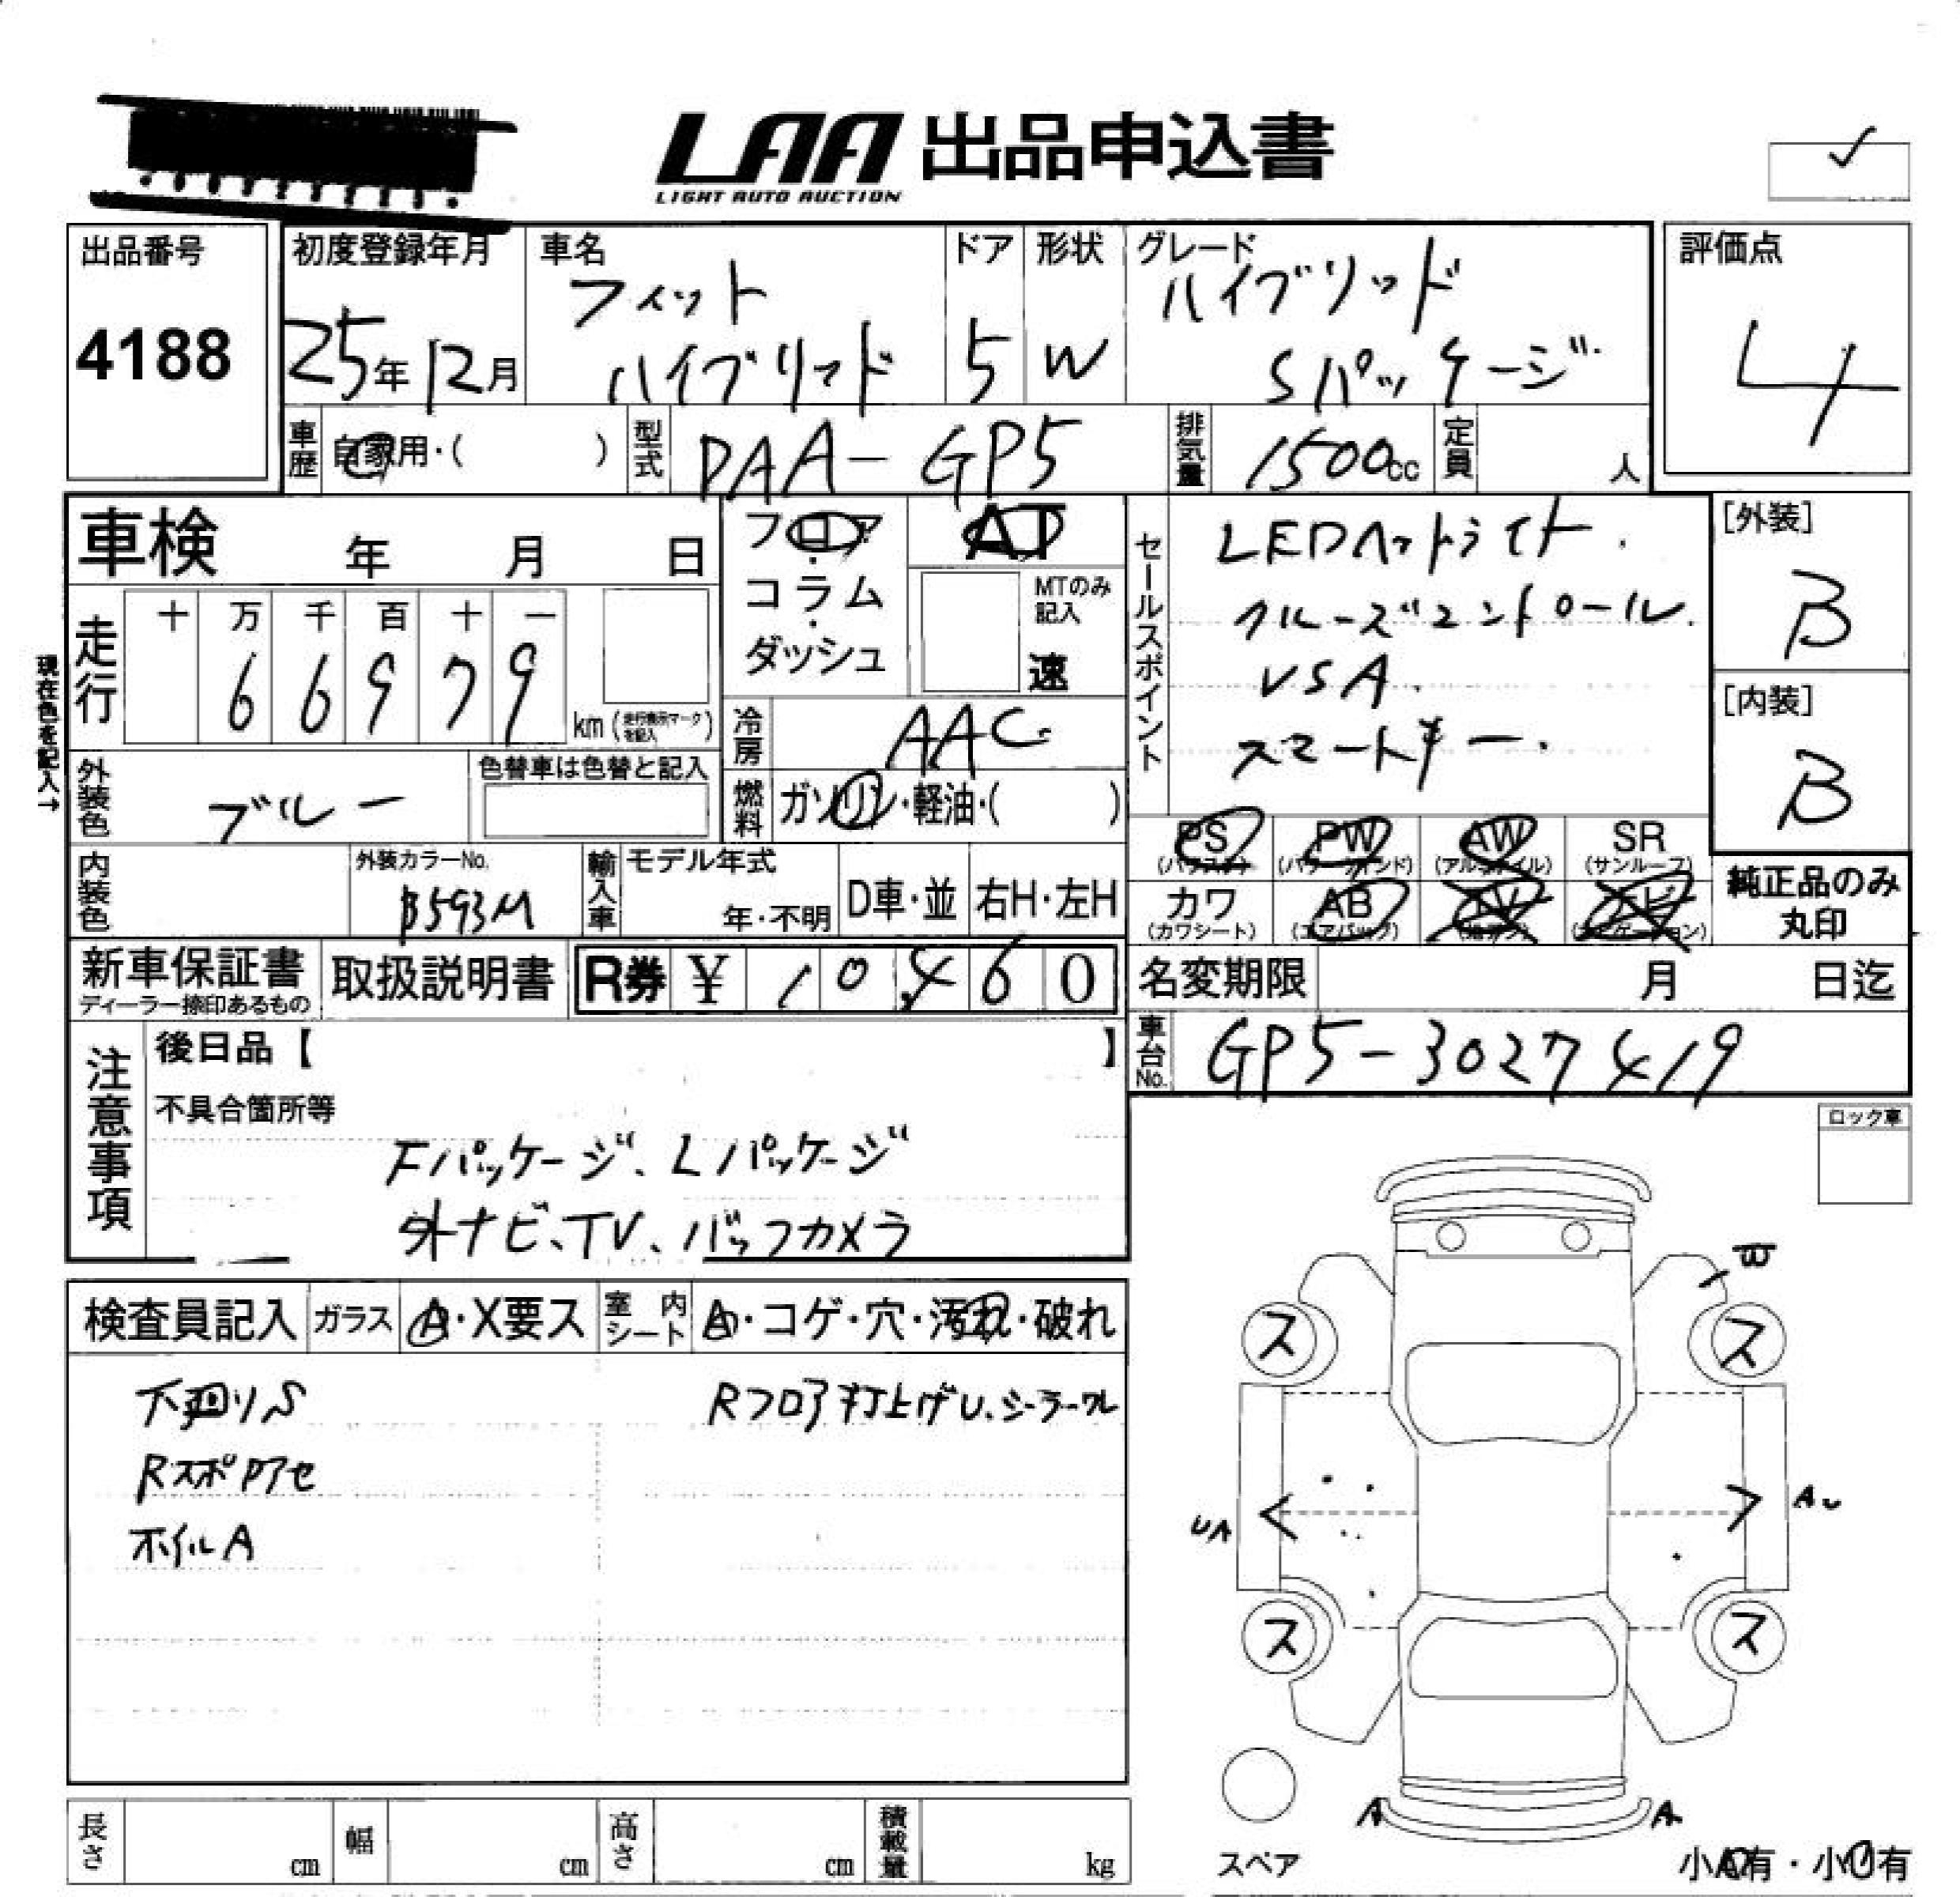 LAA 出品申込書
LIGHT AUTO AUCTION
出品番号
4188
初度登録年月
25年12月
車名
フィット
ハイブリッド
ドア
5
形状
W
グレード
ハイブリッド
Sパッケージ
評価点
4
車歴
自家用・( )
型式
DAA-GP5
排気量
1500cc
定員
人
車検 年 月 日
フロア・コラム・ダッシュ
AT
MTのみ記入
速
セールスポイント
LEDヘットライト.
クルーズコントロール.
VSA.
スマートキー.
[外装]
B
[内装]
B
現在色を記入→
走行
十 万 千 百 十 一
6 6 9 7 9
km (走行表示マークを記入)
冷房
AAC
外装色
ブルー
色替車は色替と記入
燃料
ガソリン・軽油・( )
内装色
外装カラーNo.
B593M
輸入車
モデル年式
年・不明
D車・並
右H・左H
PS (パワステ)
PW (パワーウィンド)
AW (アルミホイル)
SR (サンルーフ)
カワ (カワシート)
AB (エアバッグ)
TV
ナビ (ナビゲーション)
純正品のみ
丸印
新車保証書
ディーラー捺印あるもの
取扱説明書
R券 ¥ 10,460
名変期限 月 日迄
車台No.
GP5-3027419
注意事項
後日品【 】
不具合箇所等
Fパッケージ、Lパッケージ
外ナビ、TV、バックカメラ
ロック車
検査員記入
ガラス
A・X要ス
室内シート
A・コゲ・穴・汚れ・破れ
下廻りS
Rフロア打上げU、シーラーワレ
Rスポアセ
ホイルA
W
ス
ス
UA
AU
ス
ス
A
A
スペア
小A有・小U有
長さ cm
幅 cm
高さ cm
積載量 kg